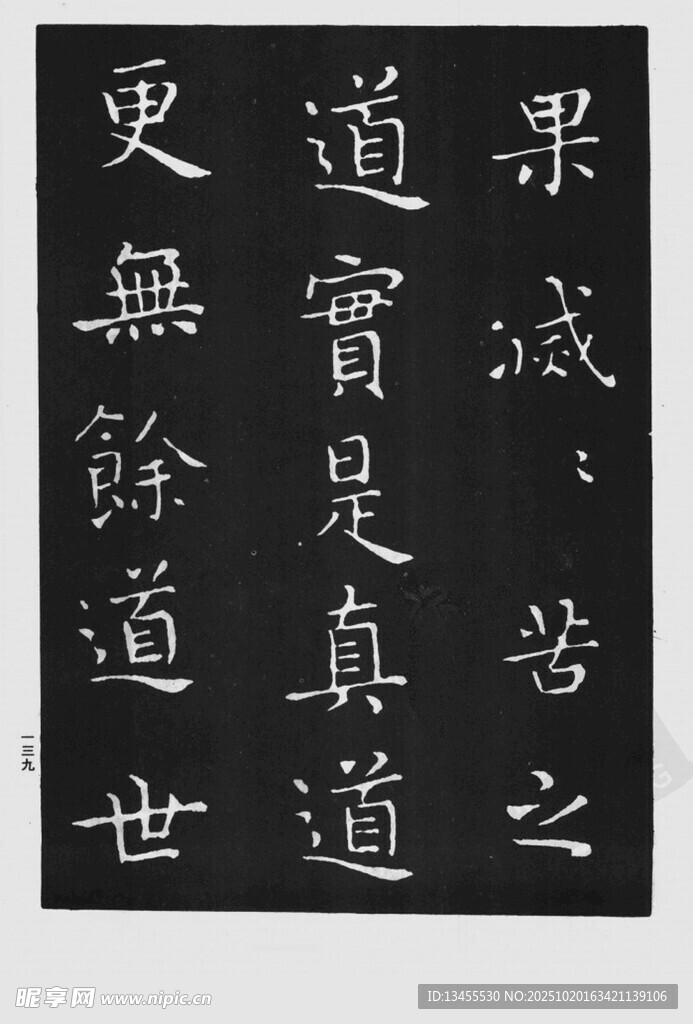 果滅〻苦之
道實是真道
更無餘道世
一三九
昵享网 www.nipic.cn
ID:13455530 NO:20251020163421139106